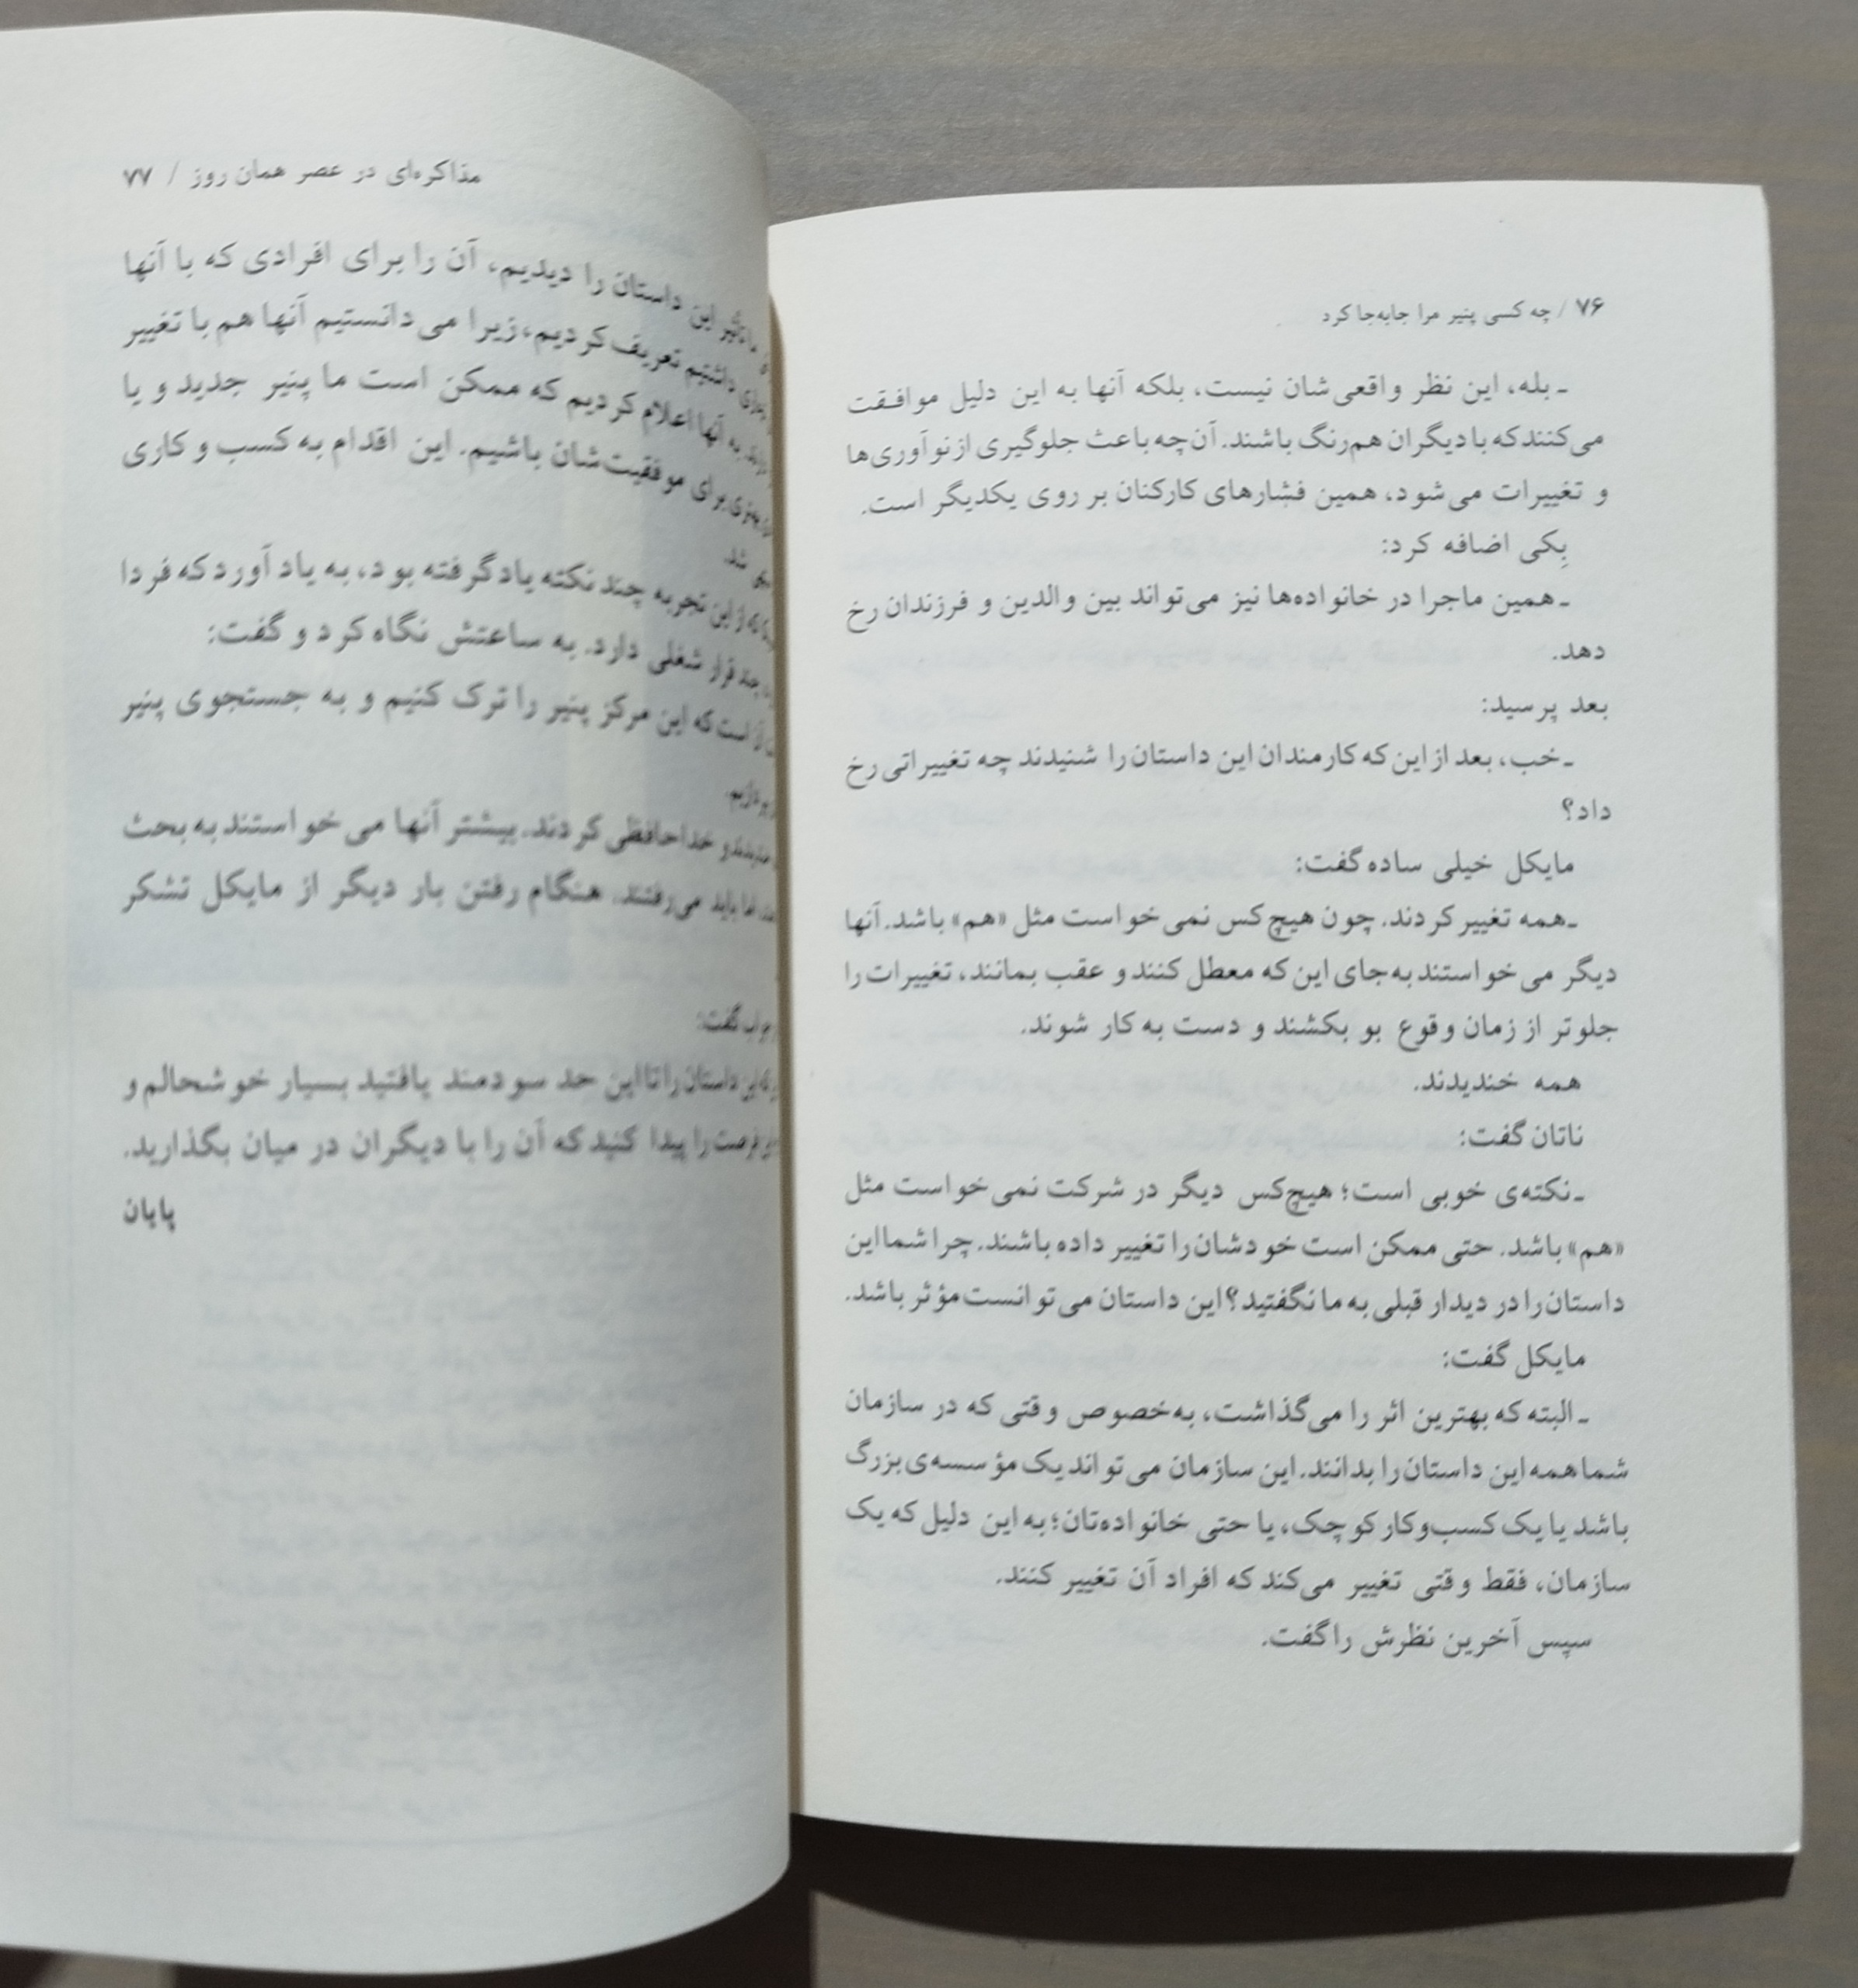 ۷۶ / چه کسی پنیر مرا جابه‌جا کرد
ـ بله، این نظر واقعی‌شان نیست، بلکه آنها به این دلیل موافقت
می‌کنند که با دیگران هم‌رنگ باشند. آن‌چه باعث جلوگیری از نوآوری‌ها
و تغییرات می‌شود، همین فشارهای کارکنان بر روی یکدیگر است.
بِکی اضافه کرد:
ـ همین ماجرا در خانواده‌ها نیز می‌تواند بین والدین و فرزندان رخ
دهد.
بعد پرسید:
ـ خب، بعد از این که کارمندان این داستان را شنیدند چه تغییراتی رخ
داد؟
مایکل خیلی ساده گفت:
ـ همه تغییر کردند. چون هیچ‌کس نمی‌خواست مثل «هم» باشد. آنها
دیگر می‌خواستند به‌جای این که معطل کنند و عقب بمانند، تغییرات را
جلوتر از زمان وقوع بو بکشند و دست به کار شوند.
همه خندیدند.
ناتان گفت:
ـ نکته‌ی خوبی است؛ هیچ‌کس دیگر در شرکت نمی‌خواست مثل
«هم» باشد. حتی ممکن است خودشان را تغییر داده باشند. چرا شما این
داستان را در دیدار قبلی به ما نگفتید؟ این داستان می‌توانست مؤثر باشد.
مایکل گفت:
ـ البته که بهترین اثر را می‌گذاشت، به‌خصوص وقتی که در سازمان
شما همه این داستان را بدانند. این سازمان می‌تواند یک مؤسسه‌ی بزرگ
باشد یا یک کسب‌وکار کوچک، یا حتی خانواده‌تان؛ به این دلیل که یک
سازمان، فقط وقتی تغییر می‌کند که افراد آن تغییر کنند.
سپس آخرین نظرش را گفت.
مذاکره‌ای در عصر همان روز / ۷۷
تأثیر این داستان را دیدیم، آن را برای افرادی که با آنها
داشتیم تعریف کردیم، زیرا می‌دانستیم آنها هم با تغییر
به آنها اعلام کردیم که ممکن است ما پنیر جدید و یا
برای موفقیت‌شان باشیم. این اقدام به کسب و کاری
شد.
که از این تجربه چند نکته یاد گرفته بود، به یاد آورد که فردا
چند قرار شغلی دارد. به ساعتش نگاه کرد و گفت:
آن است که این مرکز پنیر را ترک کنیم و به جستجوی پنیر
بپردازیم.
خندیدند و خداحافظی کردند. بیشتر آنها می‌خواستند به بحث
اما باید می‌رفتند. هنگام رفتن بار دیگر از مایکل تشکر
جواب گفت:
که این داستان را تا این حد سودمند یافتید بسیار خوشحالم و
فرصت را پیدا کنید که آن را با دیگران در میان بگذارید.
پایان